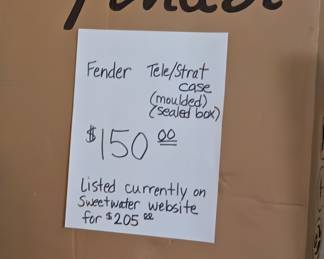 Fender
Fender Tele/Strat
case
(moulded)
(sealed box)
$150 00
Listed currently on
Sweetwater website
for $205 00